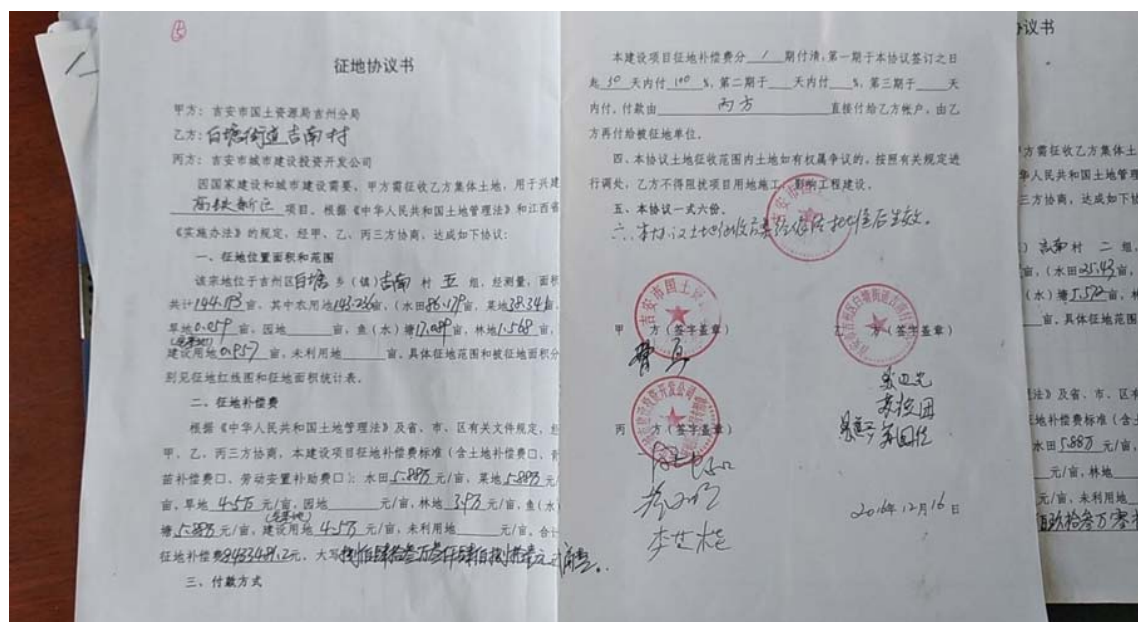 征地协议书
甲方：吉安市国土资源局吉州分局
乙方：白塘街道吉南村
丙方：吉安市城市建设投资开发公司
因国家建设和城市建设需要，甲方需征收乙方集体土地，用于兴建
高铁新区 项目。根据《中华人民共和国土地管理法》和江西省
《实施办法》的规定，经甲、乙、丙三方协商，达成如下协议：
一、征地位置面积和范围
该宗地位于吉州区白塘乡（镇）吉南 村 五 组，经测量，面积
共计144.193亩，其中农用地143.236亩，（水田86.179亩，菜地38.341亩，
旱地0.059亩，园地______亩，鱼（水）塘17.089亩，林地1.568亩，
(宅基地)
建设用地0.957亩，未利用地______亩，具体征地范围和被征地面积分
别见征地红线图和征地面积统计表。
二、征地补偿费
根据《中华人民共和国土地管理法》及省、市、区有关文件规定，经
甲、乙、丙三方协商，本建设项目征地补偿费标准（含土地补偿费□、青
苗补偿费□、劳动安置补助费□）：水田5.88万元/亩，菜地5.88万元/
亩，旱地4.5万元/亩，园地______元/亩，林地3.9万元/亩，鱼（水）
(宅基地)
塘5.88万元/亩，建设用地4.5万元/亩，未利用地______元/亩，合计
征地补偿费8433481.2元，大写
三、付款方式
本建设项目征地补偿费分 1 期付清，第一期于本协议签订之日
起 30 天内付 100 %，第二期于____天内付____%，第三期于____天
内付，付款由 丙方 直接付给乙方帐户，由乙
方再付给被征地单位。
四、本协议土地征收范围内土地如有权属争议的，按照有关规定进
行调处，乙方不得阻扰项目用地施工，影响工程建设。
五、本协议一式六份。
六、本协议土地征收方案经依法批准后生效。
甲 方（签字盖章）
乙 方（签字盖章）
丙 方（签字盖章）
2016年12月16日
协议书
方需征收乙方集体土
华人民共和国土地管理
三方协商，达成如下协
吉南村 二 组，
亩，（水田25.43亩，
（水）塘1.572亩，林
亩，具体征地范围
法》及省、市、区有
地补偿费标准（含土
水田5.88万元/亩，
元/亩，林地
元/亩，未利用地